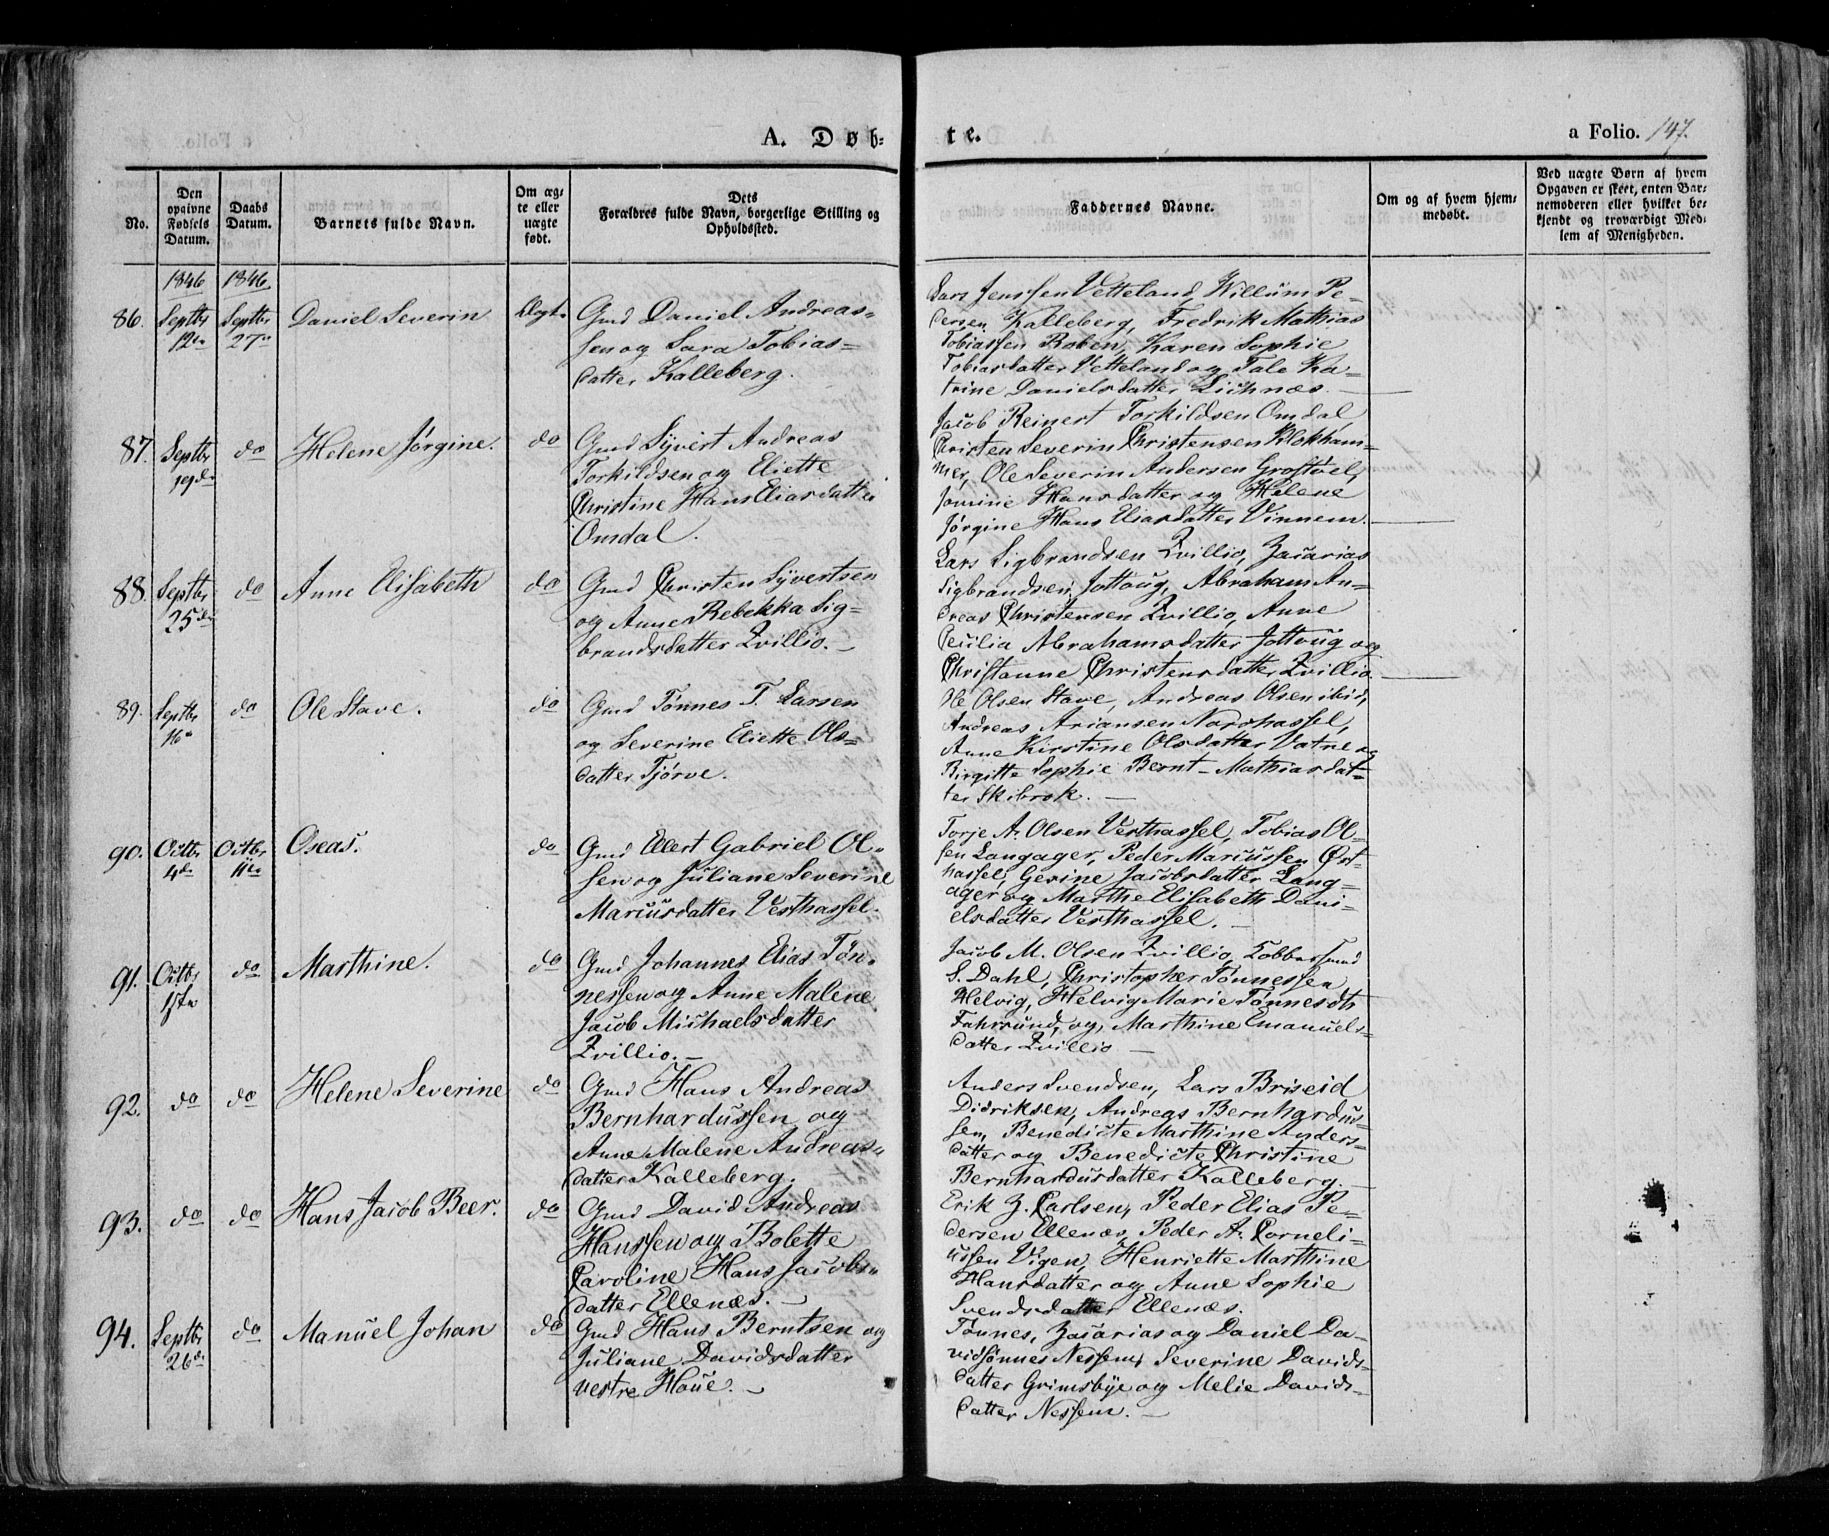 A. Døb-
te.
a Folio. 147.
No.
Den
opgivne
Fødsels
Datum.
Daabs
Datum.
Barnets fulde Navn.
Om æg-
te eller
uægte
født.
Dets
Forældres fulde Navn, borgerlige Stilling og
Opholdssted.
Faddernes Navne.
Om og af hvem hjem-
medøbt.
Ved uægte Børn af hvem
Opgaven er skeet, enten Bar-
nemoderen eller hvilket be-
kjendt og troværdigt Med-
lem af Menigheden.
1846 1846
86.
Septbr
12te
Septbr
27de
Daniel Severin
Ægte
Gmd Daniel Andreas-
sen og Sara Tobias-
datter Kalleberg.
Lars Jenssen Vetteland, Willum Pe-
dersen Kalleberg, Fredrik Mathias
Tobiassen Roben, Karen Sophie
Tobiasdatter Vetteland og Tale Ka-
trine Danielsdatter Lichnæs.
87.
Septbr
19de
do
Helene Jørgine.
do
Gmd Syvert Andreas
Torkildsen og Eliette
Christine Hans Eliasdatter
Omdal.
Jacob Reinert Torkildsen Omdal,
Christen Severin Christensen Blekham-
mer, Ole Severin Andersen Grostøel,
Jomine Hansdatter og Helene
Jørgine Hans Eliasdatter Vinnem.
88.
Septbr
25de
do
Anne Elisabeth
do
Gmd Christen Syvertsen
og Anne Rebekka Sig-
brandsdatter Zvillio.
Lars Sigbrandsen Zvillio, Zacarias
Sigbrandsen Jottoug, Abraham An-
dreas Christensen Zvillio, Anne
Cecilia Abrahamsdatter Jottoug og
Christanne Christensdatter Zvillio.
89.
Septbr
16de
do
Ole Stave.
do
Gmd Tønnes T. Larsen
og Severine Eliette Ols-
datter Tjørve.
Ole Olsen Stave, Andreas Olsen ibid,
Andreas Ariansen Nordhassel,
Anne Kirstine Olsdatter Vatne og
Birgitte Sophie Bernt-Mathiasdat-
ter Skibrok.
90.
Octbr
4de
Octbr
11te
Oseas.
do
Gmd Elert Gabriel Ol-
sen og Juliane Severine
Mariusdatter Vesthassel.
Torje A. Olsen Vesthassel, Tobias Ol-
sen Langager, Peder Mariussen Øst-
hassel, Gesine Jacobsdatter Lang-
ager og Marthe Elisabeth Dani-
elsdatter Vesthassel.
91.
Octbr
1ste
do
Marthine.
do
Gmd Johannes Elias Tøn-
nessen og Anne Malene
Jacob Michaelsdatter
Zvillio.
Jacob M. Olsen Zvillio,
S. Dahl, Christopher Tønnessen
Helvig, Helvig Marie Tønnesdtr
Fahrsund, og Marthine Emanuels-
datter Zvillio
92.
do
do
Helene Severine
do
Gmd Hans Andreas
Bernhardussen og
Anne Malene Andreas-
datter Kalleberg.
Anders Svendsen, Lars Briseid
Didriksen, Andreas Bernhardus-
sen, Benedicte Marthine Anders-
datter og Benedicte Christine
Bernhardusdatter Kalleberg.
93.
do
do
Hans Jacob Beer.
do
Gmd David Andreas
Hanssen og Bolette
Caroline Hans Jacobs-
datter Ellenæs.
Erik Z. Carlsen, Peder Elias Pe-
dersen Ellenæs, Peder A. Corneli-
ussen Vigen, Henriette Marthine
Hansdatter og Anne Sophie
Svendsdatter Ellenæs.
94.
Septbr
26de
do
Manuel Johan
do
Gmd Hans Berntsen og
Juliane Davidsdatter
vestre Houe.
Tønnes, Zacarias og Daniel Da-
vidsønnes Nessem, Severine Davids-
datter Grimsbye og Melie Davids-
datter Nessem.